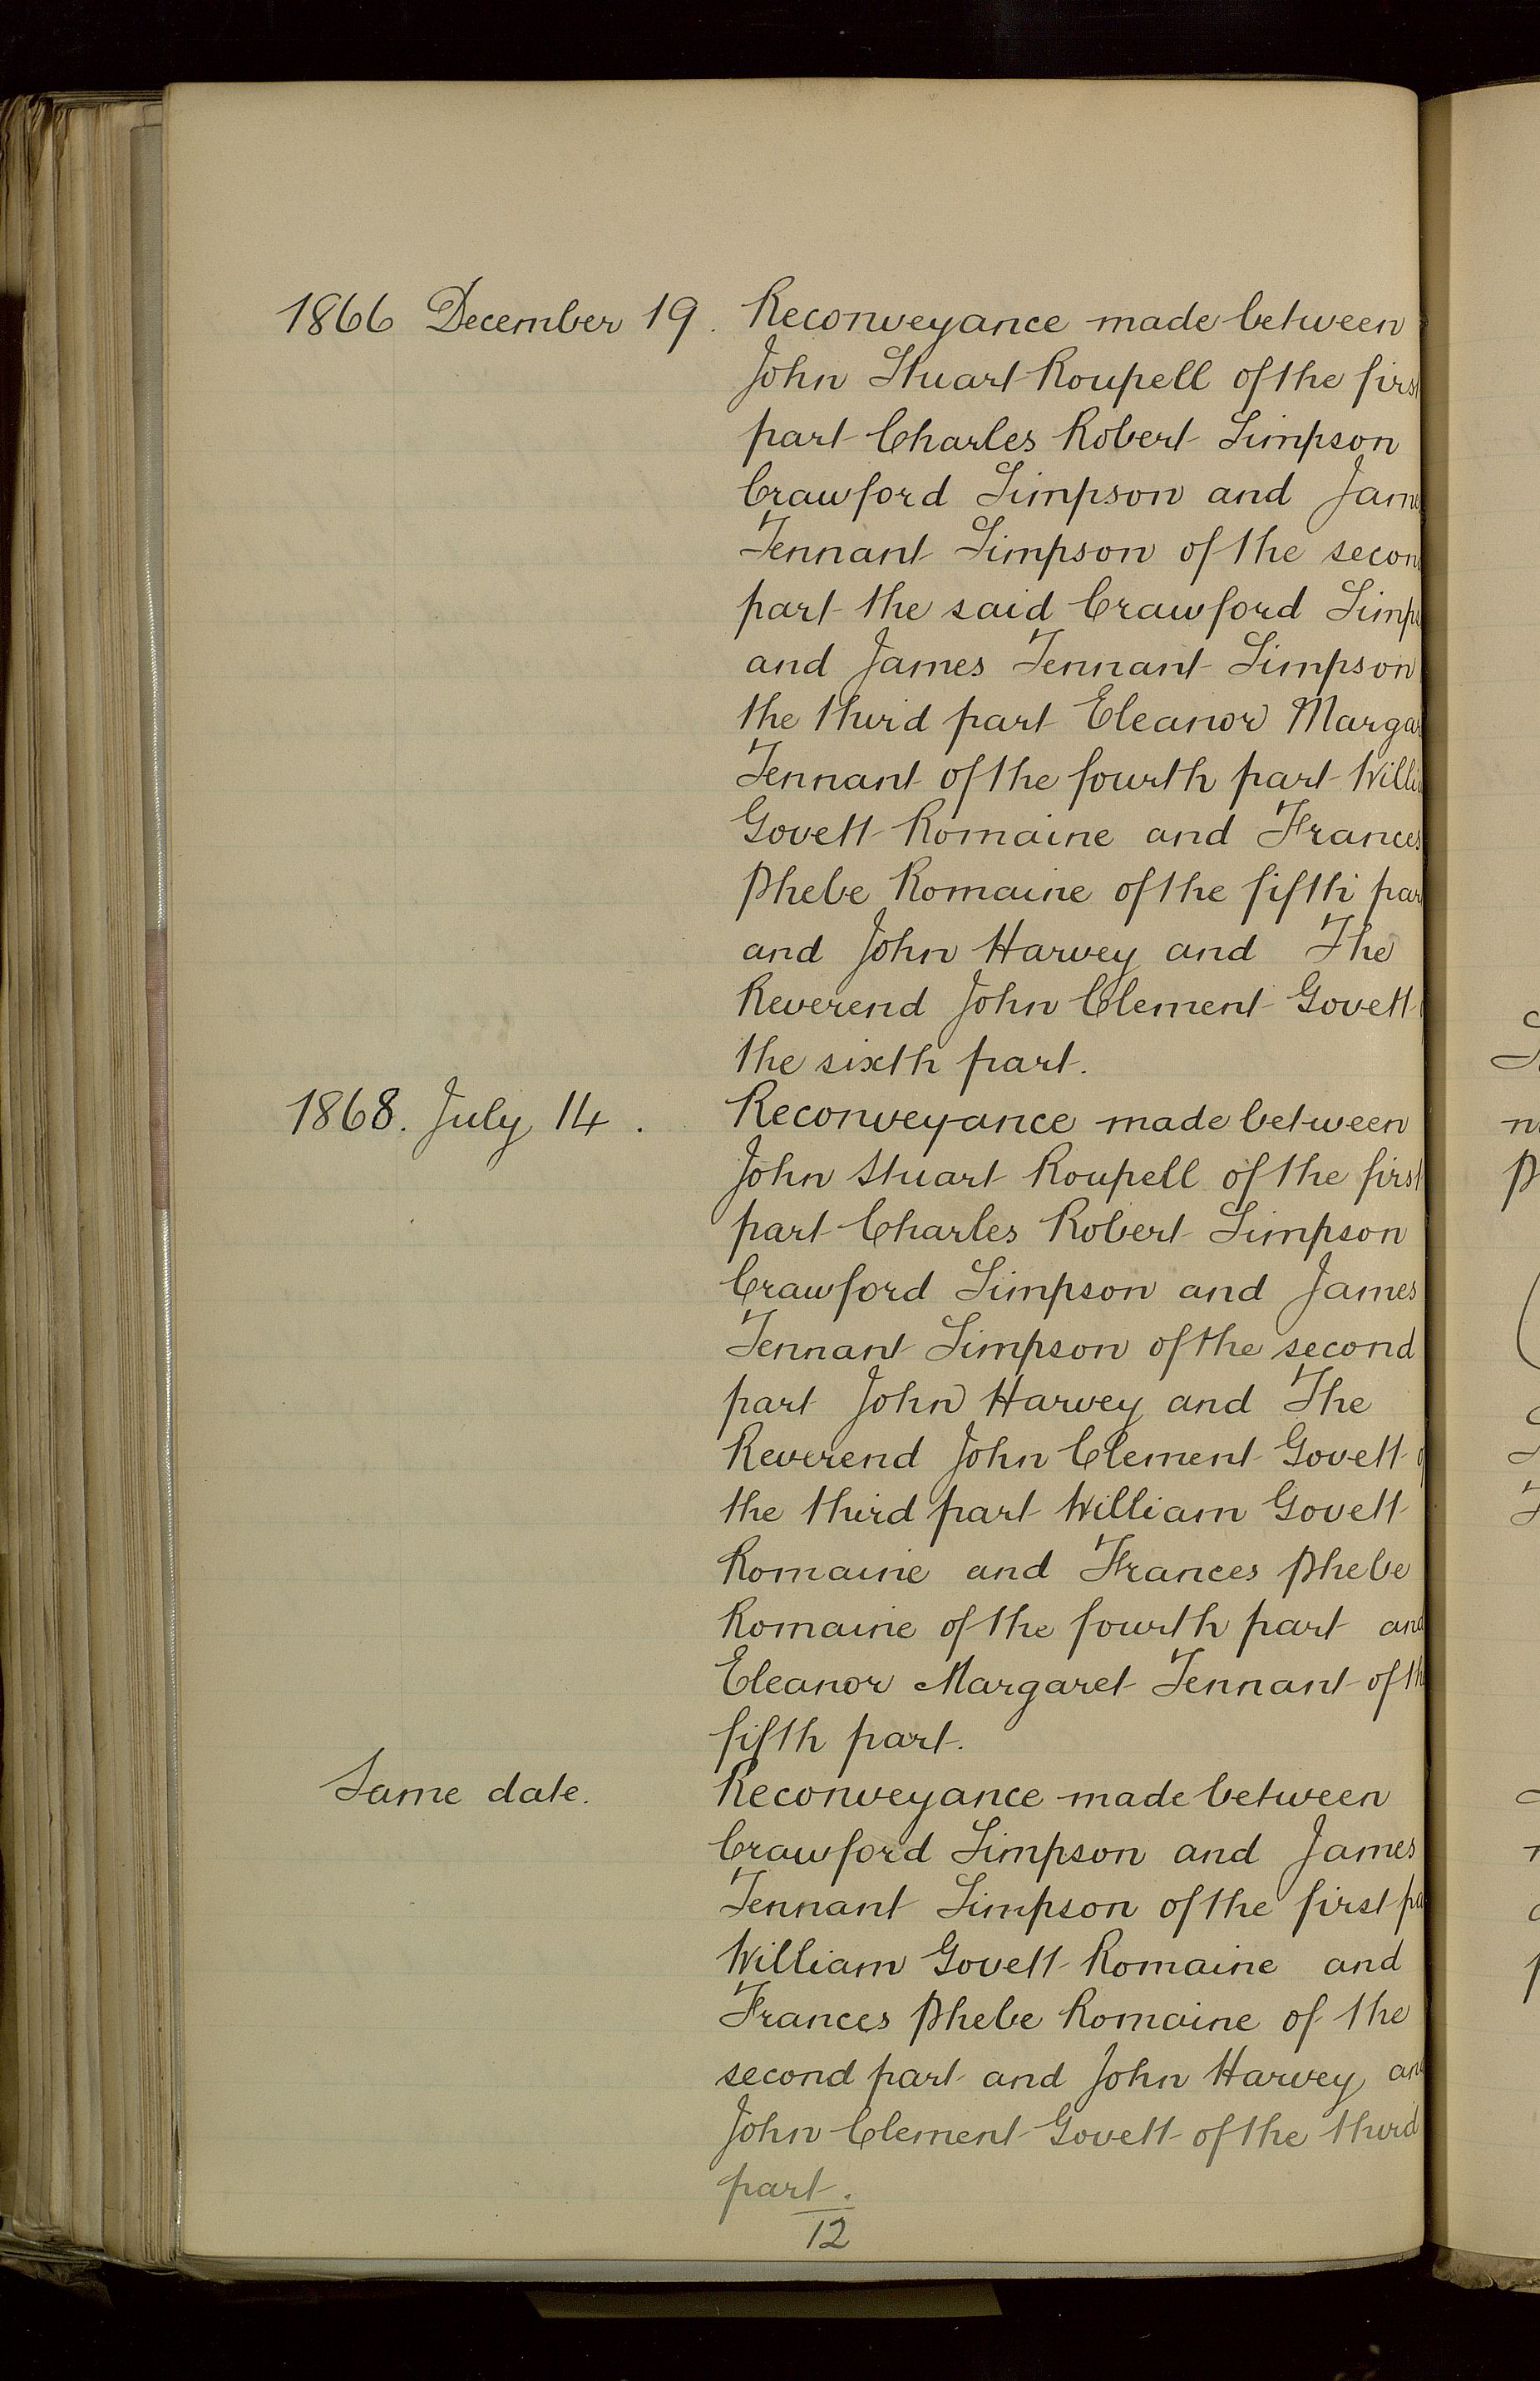 1866 December 19. Reconveyance made between
John Stuart Roupell of the first
part Charles Robert Simpson
Crawford Simpson and Jame
Tennant Simpson of the secon
part the said Crawford Simps
and James Tennant Simpson
the third part Eleanor Margar
Tennant of the fourth part Willia
Govett Romaine and Frances
Phebe Romaine of the fifth par
and John Harvey and The
Reverend John Clement Govett
the sixth part.
1868. July 14. Reconveyance made between
John Stuart Roupell of the first
part Charles Robert Simpson
Crawford Simpson and James
Tennant Simpson of the second
part John Harvey and The
Reverend John Clement Govett o
the third part William Govett
Romaine and Frances Phebe
Romaine of the fourth part and
Eleanor Margaret Tennant of th
fifth part.
Same date. Reconveyance made between
Crawford Simpson and James
Tennant Simpson of the first pa
William Govett Romaine and
Frances Phebe Romaine of the
second part and John Harvey an
John Clement Govett of the third
part.
12